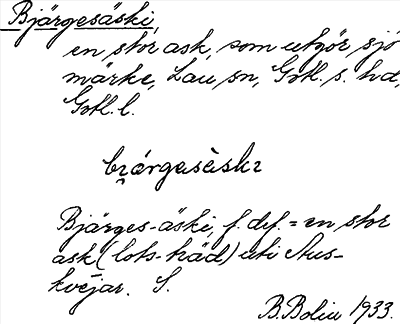 Bjärgesäski,
en stor ask, som utgör sjö
märke, Lau sn, Gotl. s. hd,
Gotl. l.
bjárgesèski
Bjärges-äski, f. def. = en stor
ask (lots-träd) uti Aus-
kvējar. S.
B. Bolin 1933.